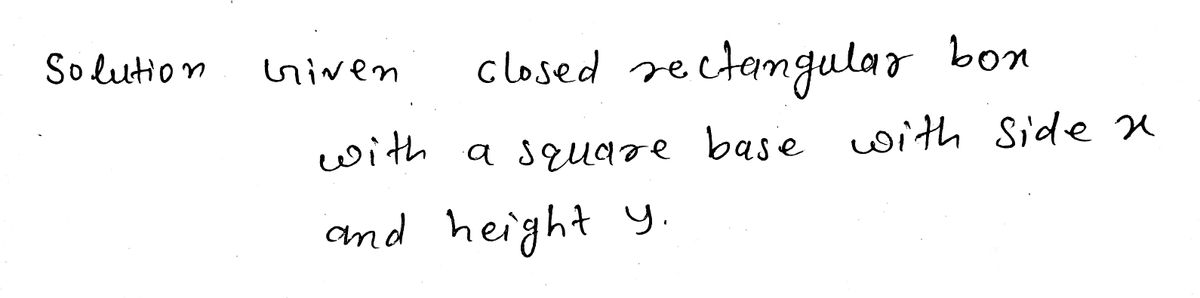 Solution Given closed rectangular box
with a square base with side x
and height y.